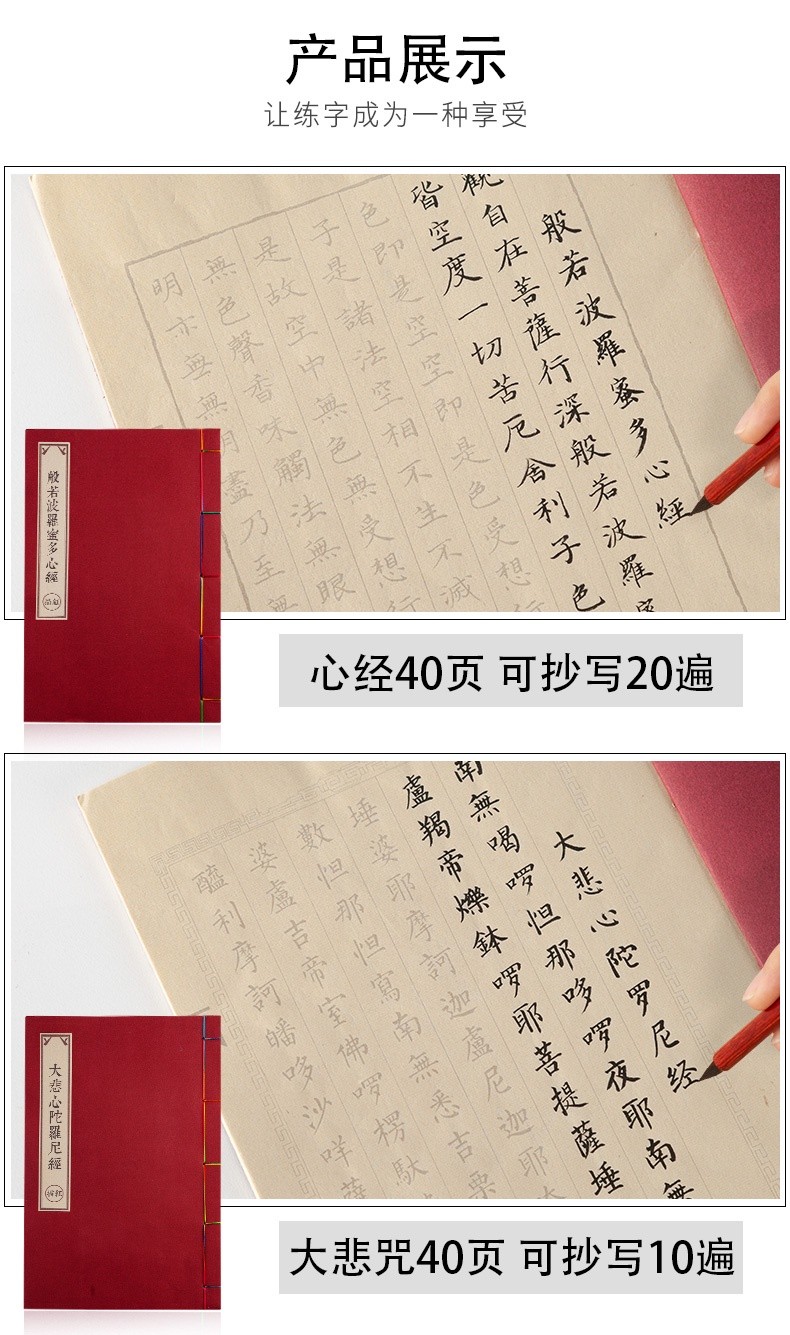 产品展示
让练字成为一种享受
般若波羅蜜多心經
觀自在菩薩行深般若波羅蜜
皆空度一切苦厄舍利子色
色即是空空即是色受想
子是諸法空相不生不滅
是故空中無色無受想行
無色聲香味觸法無眼
明亦無無明盡乃至無
般若波羅蜜多心經
心经40页 可抄写20遍
大悲心陀罗尼经
南無喝啰怛那哆啰夜耶南無
盧羯帝爍鉢啰耶菩提薩埵
埵婆耶摩訶迦盧尼迦耶
數怛那怛寫南無悉吉栗
婆盧吉帝室佛啰楞馱
醯利摩訶皤哆沙咩薩
大悲心陀羅尼經
大悲咒40页 可抄写10遍